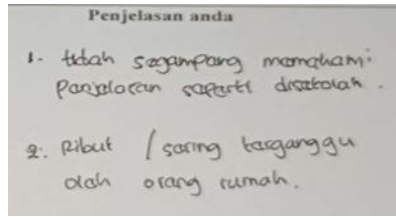 Penjelasan anda
1. tidah segampang memahami
Penjelasan seperti disekolah.
2. Ribut / sering terganggu
olah orang rumah.